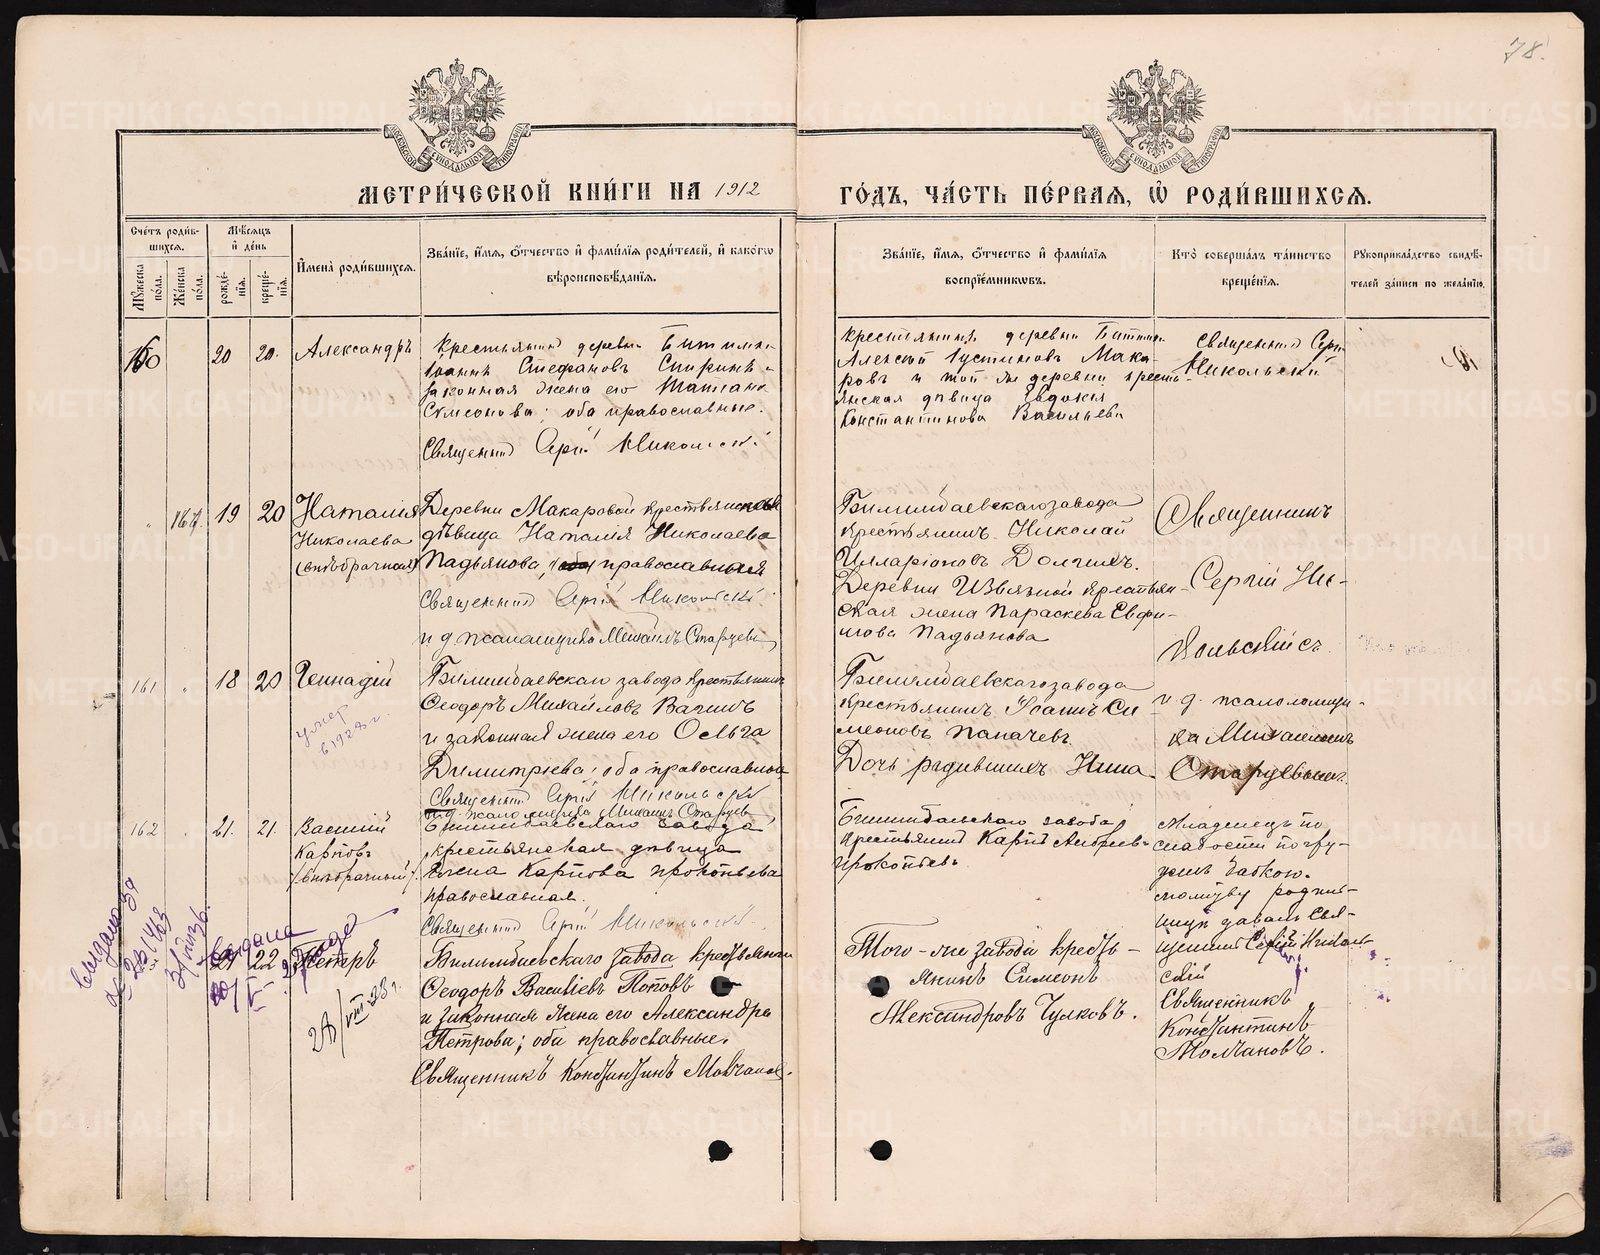 78.
МЕТРИ́ЧЕСКОЙ КНИ́ГИ НА 1912
ГО́ДЪ, ЧА́СТЬ ПЕ́РВАЯ, Ѽ РОДИ́ВШИХСЯ.
Сче́тъ роди́в-
шихся.
Мѣ́сяцъ
и҆ де́нь
Мꙋ́жеска по́ла.
Же́нска по́ла.
рожде́-
нїѧ.
креще́-
нїѧ.
И҆мена̀ роди́вшихся.
Зва́нїе, и҆́мѧ, ѻ҆́тчество и҆ фами́лїѧ роди́телей, и҆ како́гѡ
вѣроисповѣ́данїѧ.
Зва́нїе, и҆́мѧ, ѻ҆́тчество и҆ фами́лїѧ
воспрїе́мникѡвъ.
Кто̀ соверша́лъ та́инство
креще́нїѧ.
Рꙋкоприкла́дство свидѣ́-
телей за́писи по жела́нїю.
160
20
20.
Александръ
Крестьянинъ деревни
Іоаннъ Стефановъ Спиринъ и
законная жена его Татiана
Симеонова; оба православные.
Священникъ Сергій Никольскій
Крестьянинъ деревни
Алексій Іустиновъ Мака-
ровъ и той же деревни кресть-
янская дѣвица Евдокія
Константинова Васильева
Священникъ Сергій
Никольскій
19
20
Наталія
Николаева
(внебрачная)
Деревни Макаровой крестьянская
дѣвица Наталія Николаева
Падьянова, православная
Священникъ Сергій Никольскій
и д. псаломщика Михаилъ Старцевъ
Билимбаевскаго завода
крестьянинъ Николай
Илларіоновъ Долгихъ.
Деревни Извязной крестьян-
ская жена Параскева Евфи-
мова Падьянова
Священникъ
Сергій Ни-
кольскій съ
161
18
20
Геннадій
умер
в 1928 г.
Билимбаевскаго завода крестьянинъ
Ѳеодоръ Михайловъ Вагинъ
и законная жена его Ольга
Димитріева; оба православные
Священникъ Сергій Никольскій
и.д. псаломщика Михаилъ Старцевъ
Билимбаевскаго завода
крестьянинъ Іоаннъ Си-
меоновъ Папачевъ.
Дочь родившихъ Нина
и д. псаломщи-
ка Михаиломъ
Старцевымъ.
162
21.
21.
Василій
Карповъ
(внебрачный).
Билимбаевскаго завода
крестьянская дѣвица
Елена Карпова Прокопьева
православная.
Священникъ Сергій Никольскій
Билимбаевскаго завода
крестьянинъ Карпъ Андреевъ
Прокопьевъ
Младенецъ по
слабости погру-
женъ бабкою.
молитву родиль-
ницѣ давалъ Свя-
щенникъ Сергій Николь-
скій
21
22
Петръ
28/VIII-23 г.
Билимбаевскаго завода крестьянинъ
Ѳеодоръ Васильевъ Поповъ
и законная жена его Александра
Петрова; оба православные.
Священникъ Константинъ Молчановъ.
Того-же завода кресть-
янинъ Симеонъ
Александровъ Чулковъ.
Священникъ
Константинъ
Молчановъ.
METRIKI.GASO-URAL.RU